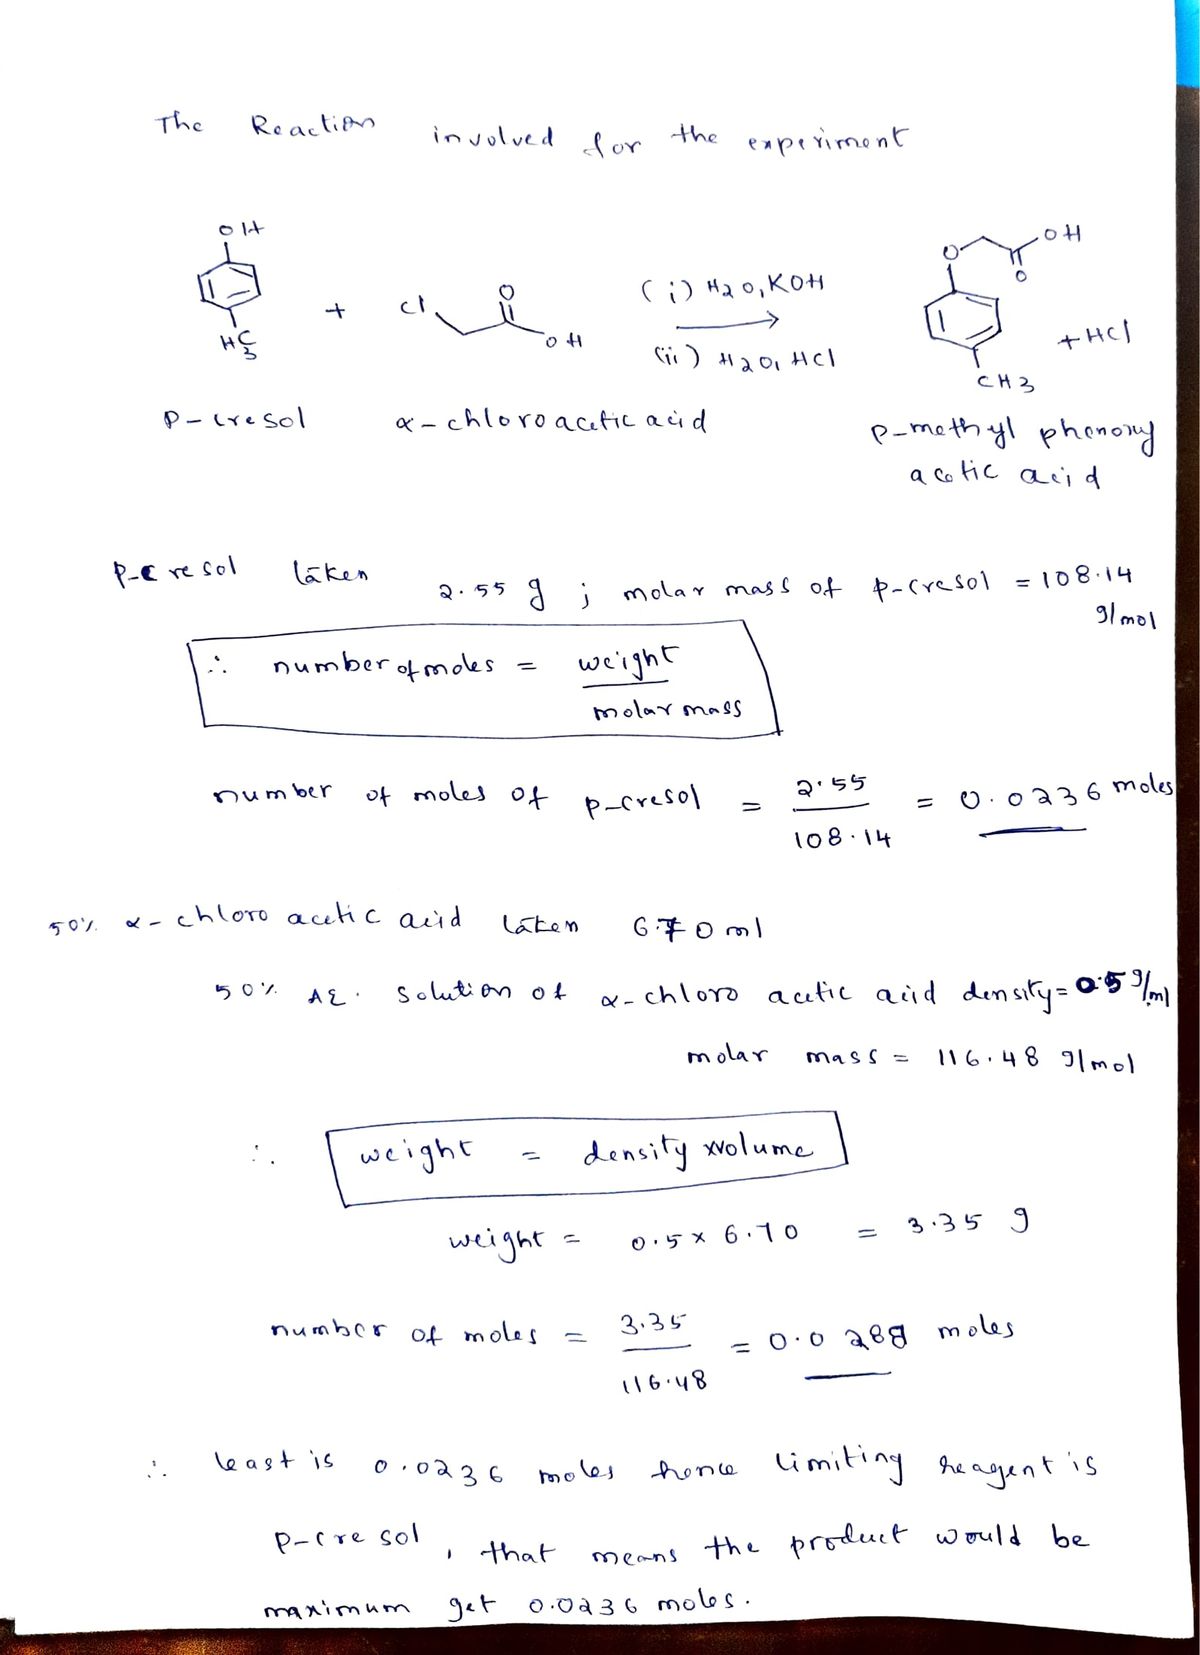 The Reaction involved for the experiment
OH
H3C
+
Cl
O
OH
(i) H2O, KOH
(ii) H2O, HCl
O
OH
O
CH3
+ HCl
p-cresol
α-chloroacetic acid
p-methyl phenoxy
acetic acid
p-cresol taken 2.55 g ; molar mass of p-cresol = 108.14
g/mol
∴ number of moles = weight
molar mass
number of moles of p-cresol = 2.55 = 0.0236 moles
108.14
50% α-chloro acetic acid taken 6.70 ml
50% Aq. solution of α-chloro acetic acid density = 0.5 g/ml
molar mass = 116.48 g/mol
∴ weight = density x volume
weight = 0.5 x 6.70 = 3.35 g
number of moles = 3.35 = 0.0288 moles
116.48
∴ least is 0.0236 moles hence limiting reagent is
p-cresol, that means the product would be
maximum get 0.0236 moles.